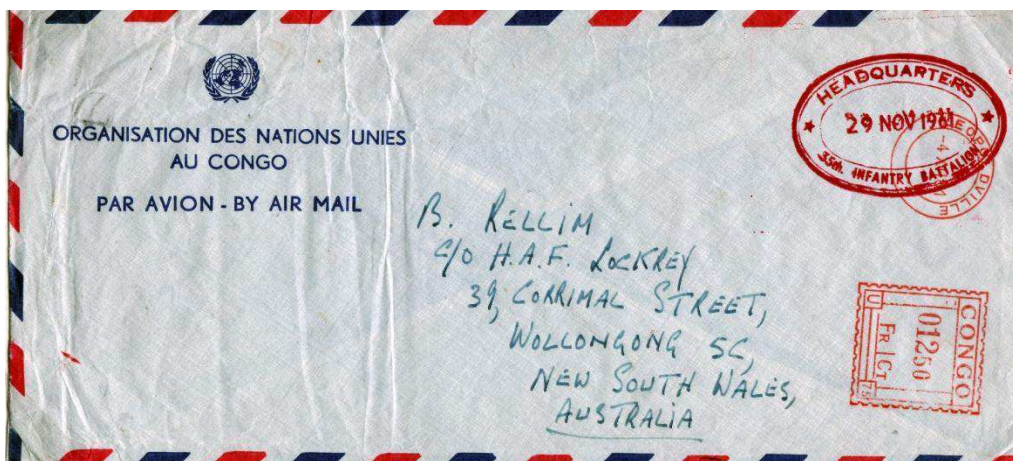 ORGANISATION DES NATIONS UNIES
AU CONGO
PAR AVION - BY AIR MAIL
HEADQUARTERS
29 NOV 1961
35th. INFANTRY BATTALION
B. RELLIM
C/O H.A.F. LOCKREY
39, CORRIMAL STREET,
WOLLONGONG 5C,
NEW SOUTH WALES,
AUSTRALIA
CONGO
01250
FR CT
U